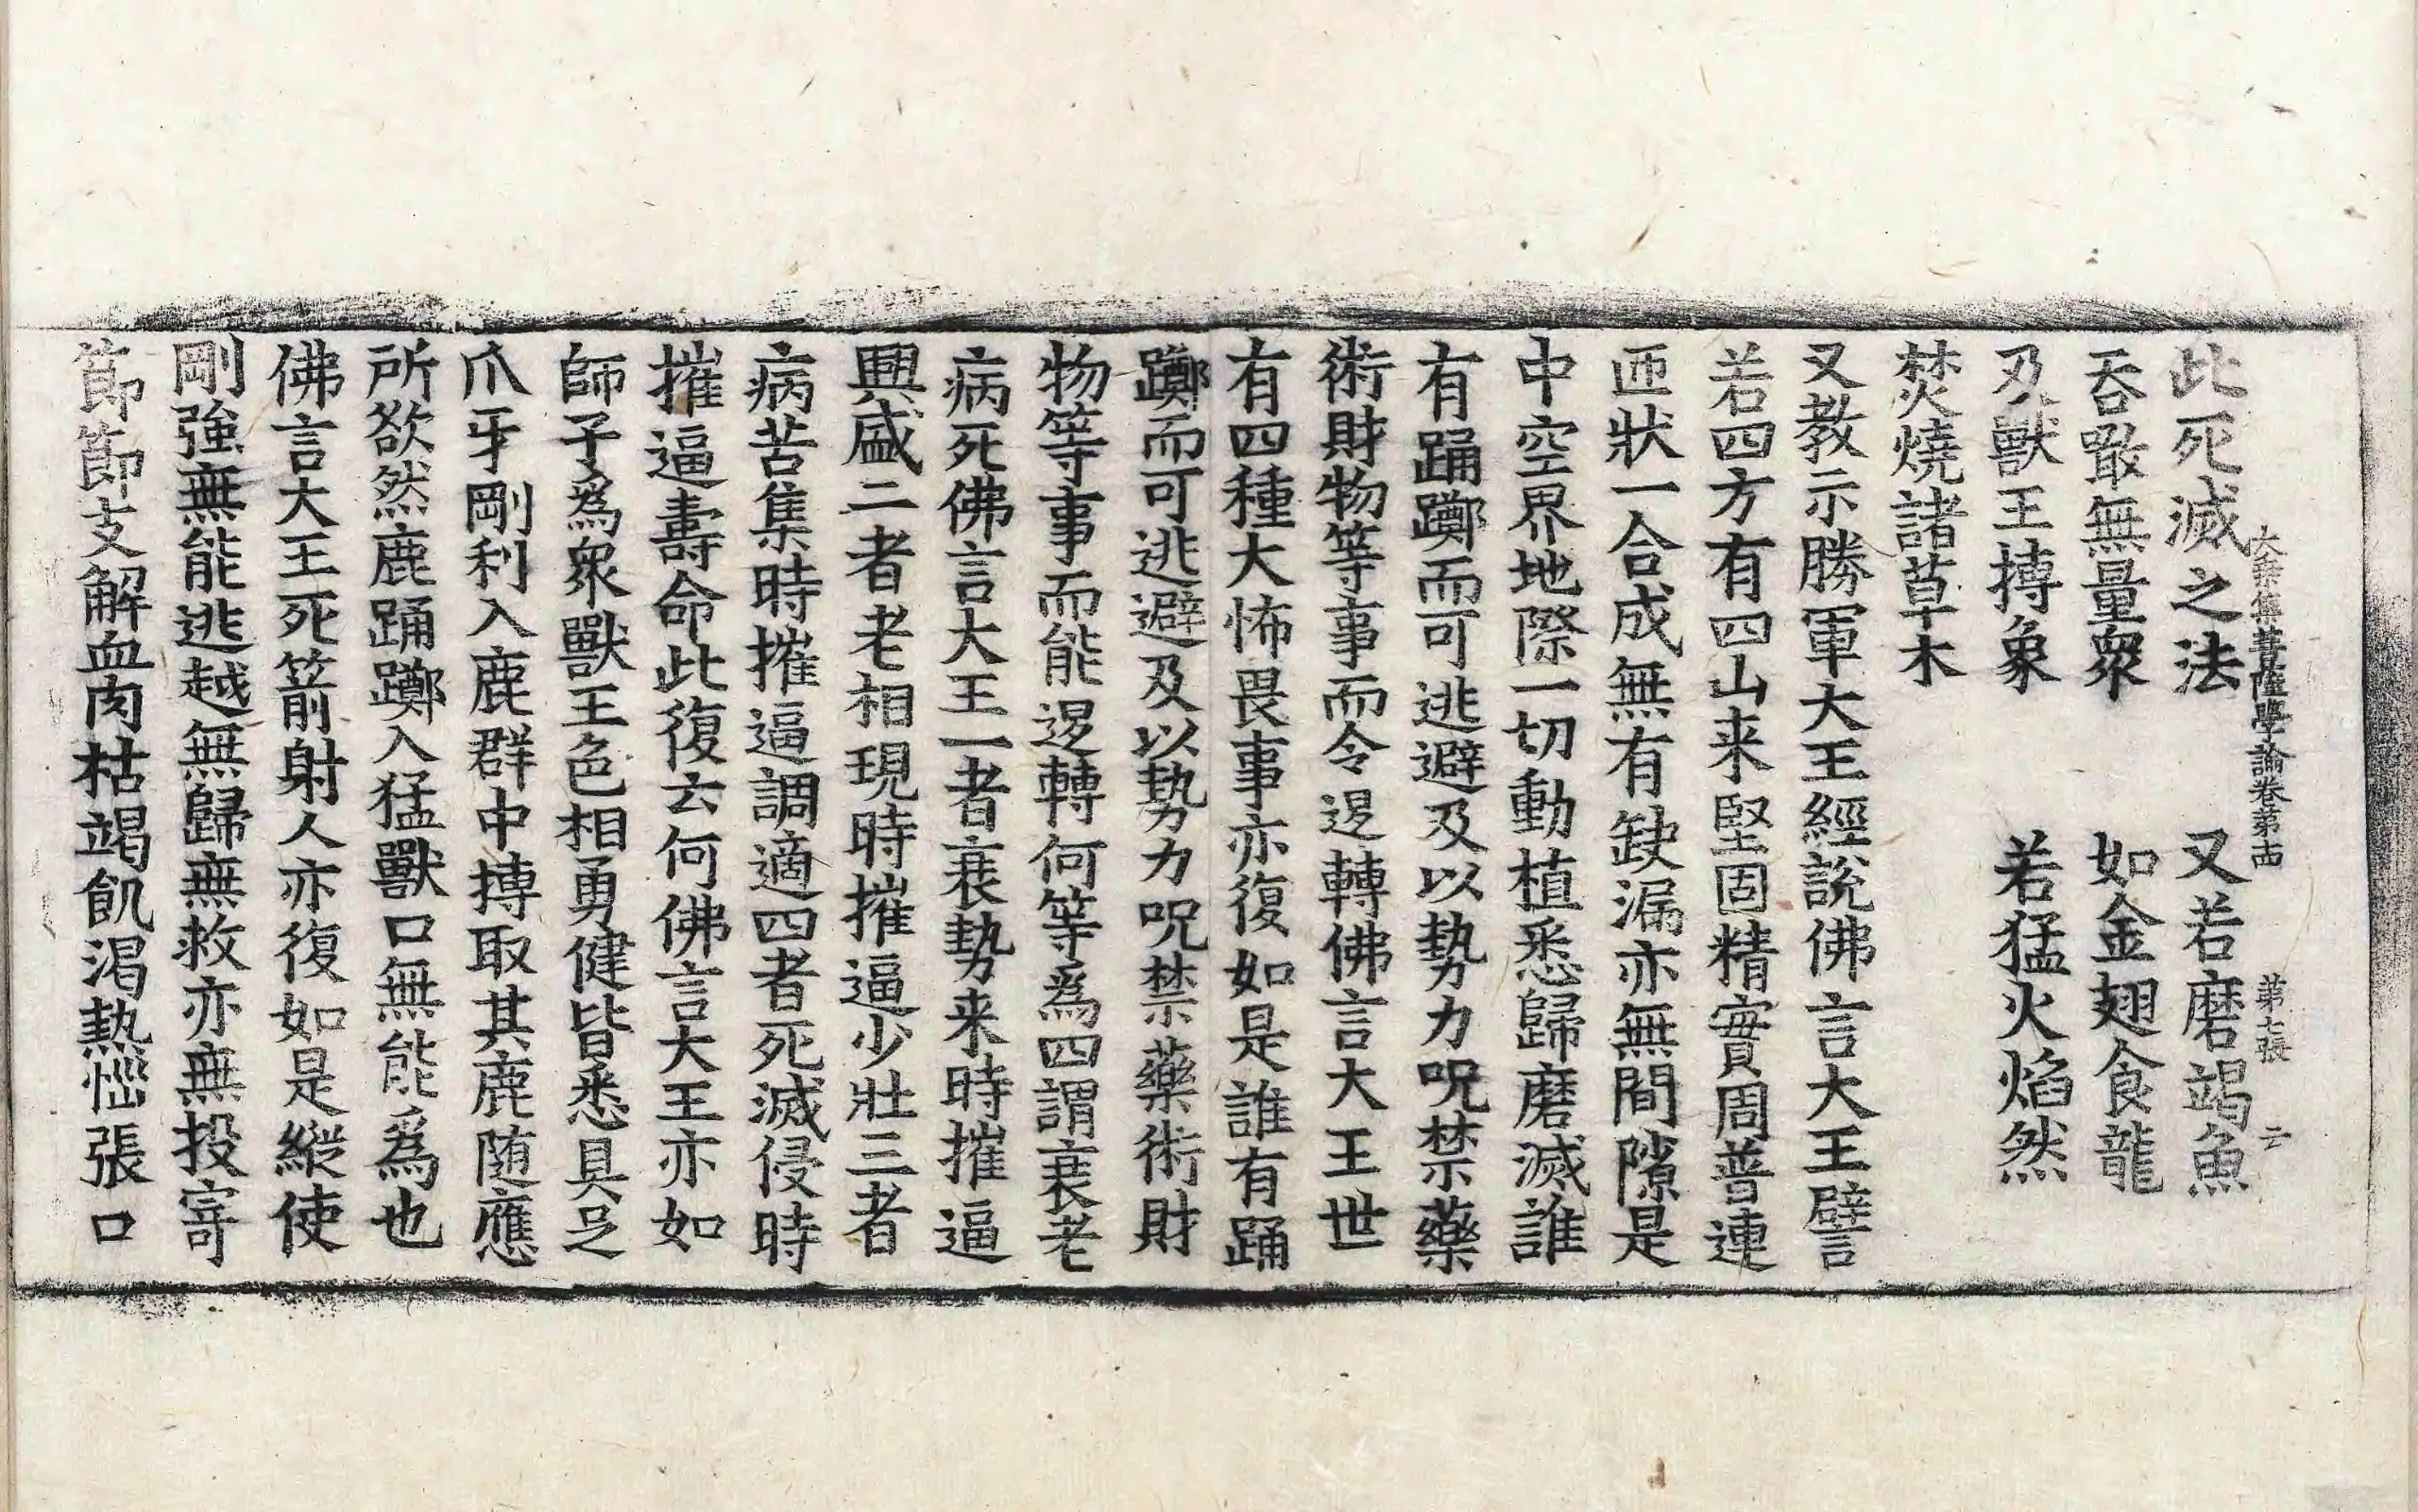 大乘集菩薩學論卷第十四　第七張　云
此死滅之法　又若磨竭魚
吞噉無量衆　如金翅食龍
及獸王摶象　若猛火焰然
焚燒諸草木
又教示勝軍大王經說佛言大王譬
若四方有四山来堅固精實周普連
匝狀一合成無有缺漏亦無間隙是
中空界地際一切動植悉歸磨滅誰
有踊躑而可逃避及以勢力呪禁藥
術財物等事而令退轉佛言大王世
有四種大怖畏事亦復如是誰有踊
躑而可逃避及以勢力呪禁藥術財
物等事而能退轉何等爲四謂衰老
病死佛言大王一者衰勢来時摧逼
興盛二者老相現時摧逼少壯三者
病苦集時摧逼調適四者死滅侵時
摧逼壽命此復云何佛言大王亦如
師子爲衆獸王色相勇健皆悉具足
爪牙剛利入鹿群中摶取其鹿随應
所欲然鹿踊躑入猛獸口無能爲也
佛言大王死箭射人亦復如是縱使
剛強無能逃越無歸無救亦無投寄
節節支解血肉枯竭飢渴熱惱張口